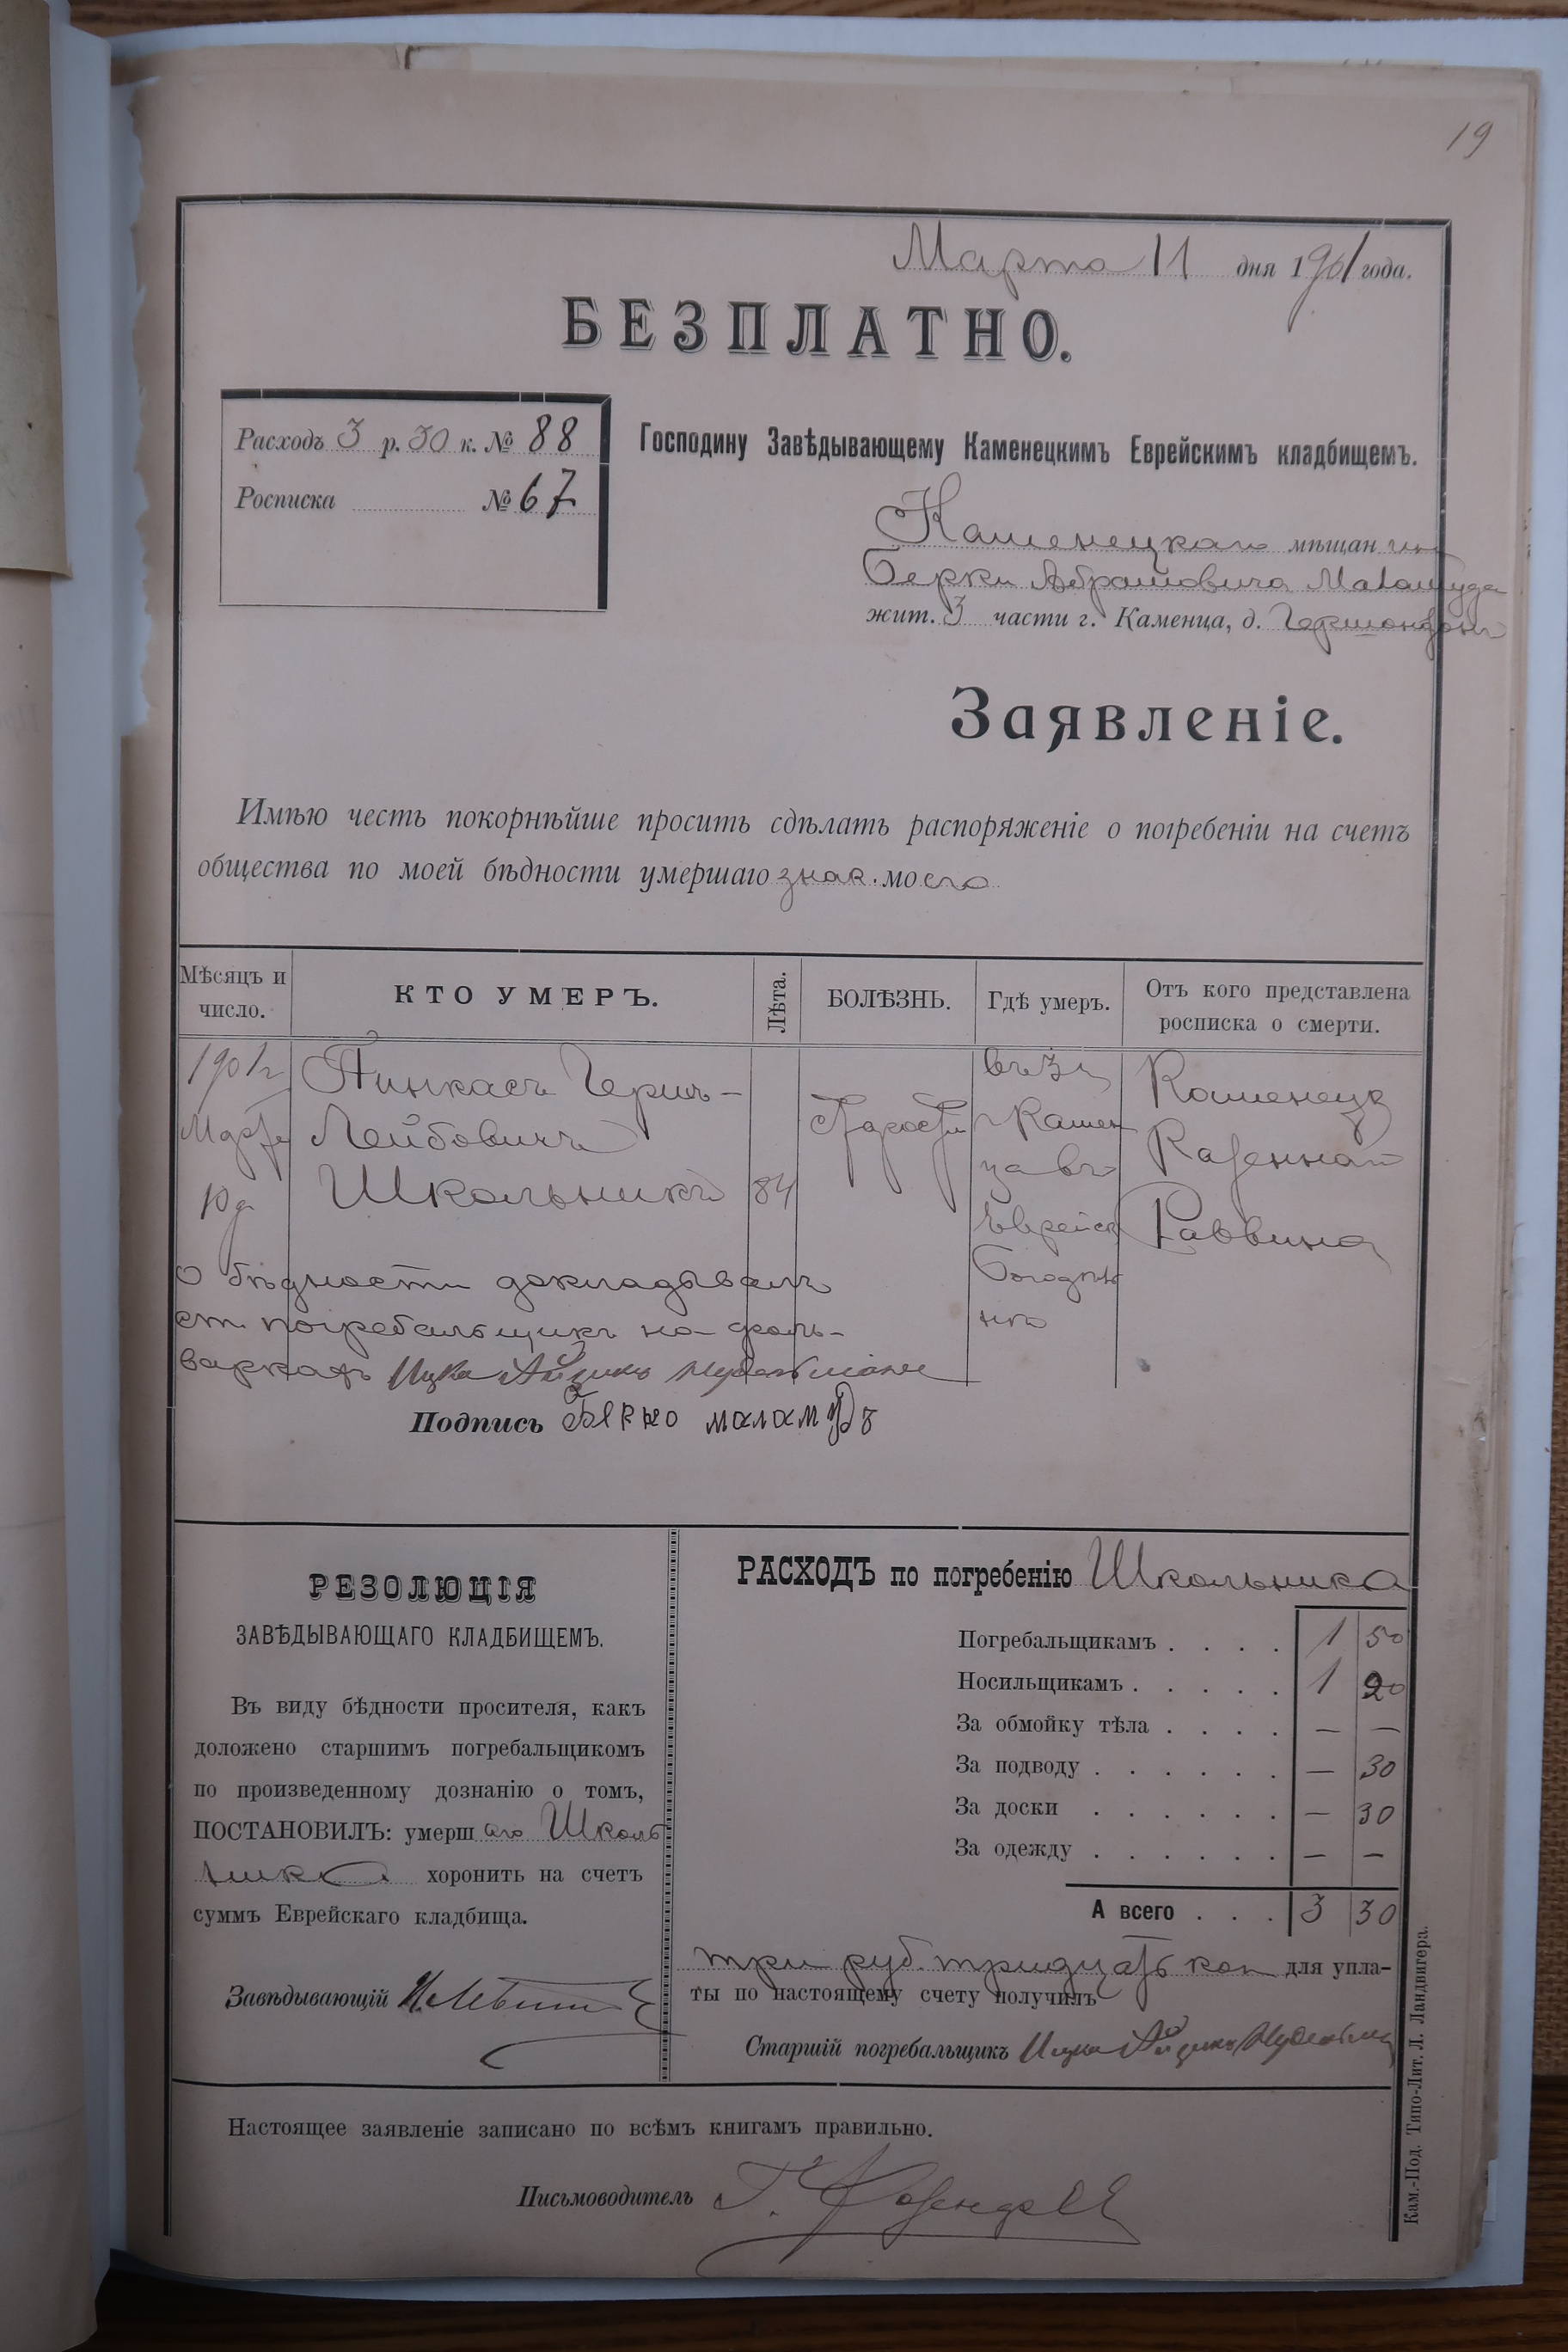 19
Марта 11 дня 1901 года.
БЕЗПЛАТНО.
Расходъ 3 р. 30 к. № 88
Росписка № 67
Господину Завѣдывающему Каменецкимъ Еврейскимъ кладбищемъ.
Каменецкаго мѣщан
Берки Абрамовича Маламуда
жит. 3 части г. Каменца, д.
Заявленіе.
Имѣю честь покорнѣйше просить сдѣлать распоряженіе о погребеніи на счетъ
общества по моей бѣдности умершаго знак. моего
Мѣсяцъ и число.
КТО УМЕРЪ.
Лѣта.
БОЛѢЗНЬ.
Гдѣ умеръ.
Отъ кого представлена росписка о смерти.
1901 г
Марта
10 д
Пинкасъ Герш-
Лейбовичъ
Школьникъ
84
старости
въ 3 ч
г Камен
ца въ
Еврейск
Богодѣль
нѣ
Каменецк
Казеннаго
Раввина
о бѣдности докладывалъ
ст. погребальщикъ на фоль-
варкахъ Ицка Айзикъ
Подпись Берко маламудъ
РЕЗОЛЮЦІЯ
ЗАВѢДЫВАЮЩАГО КЛАДБИЩЕМЪ.
Въ виду бѣдности просителя, какъ
доложено старшимъ погребальщикомъ
по произведенному дознанію о томъ,
ПОСТАНОВИЛЪ: умерш аго Школь
ника хоронить на счетъ
суммъ Еврейскаго кладбища.
Завѣдывающій
РАСХОДЪ по погребенію Школьника
Погребальщикамъ . . . . 1 50
Носильщикамъ . . . . . 1 20
За обмойку тѣла . . . . — —
За подводу . . . . . . — 30
За доски . . . . . . — 30
За одежду . . . . . . — —
А всего . . . 3 30
три руб. тридцать коп для упла-
ты по настоящему счету получилъ
Старшій погребальщикъ Ицка Айзикъ
Настоящее заявленіе записано по всѣмъ книгамъ правильно.
Письмоводитель
Кам.-Под. Типо-Лит. Л. Ландвигера.